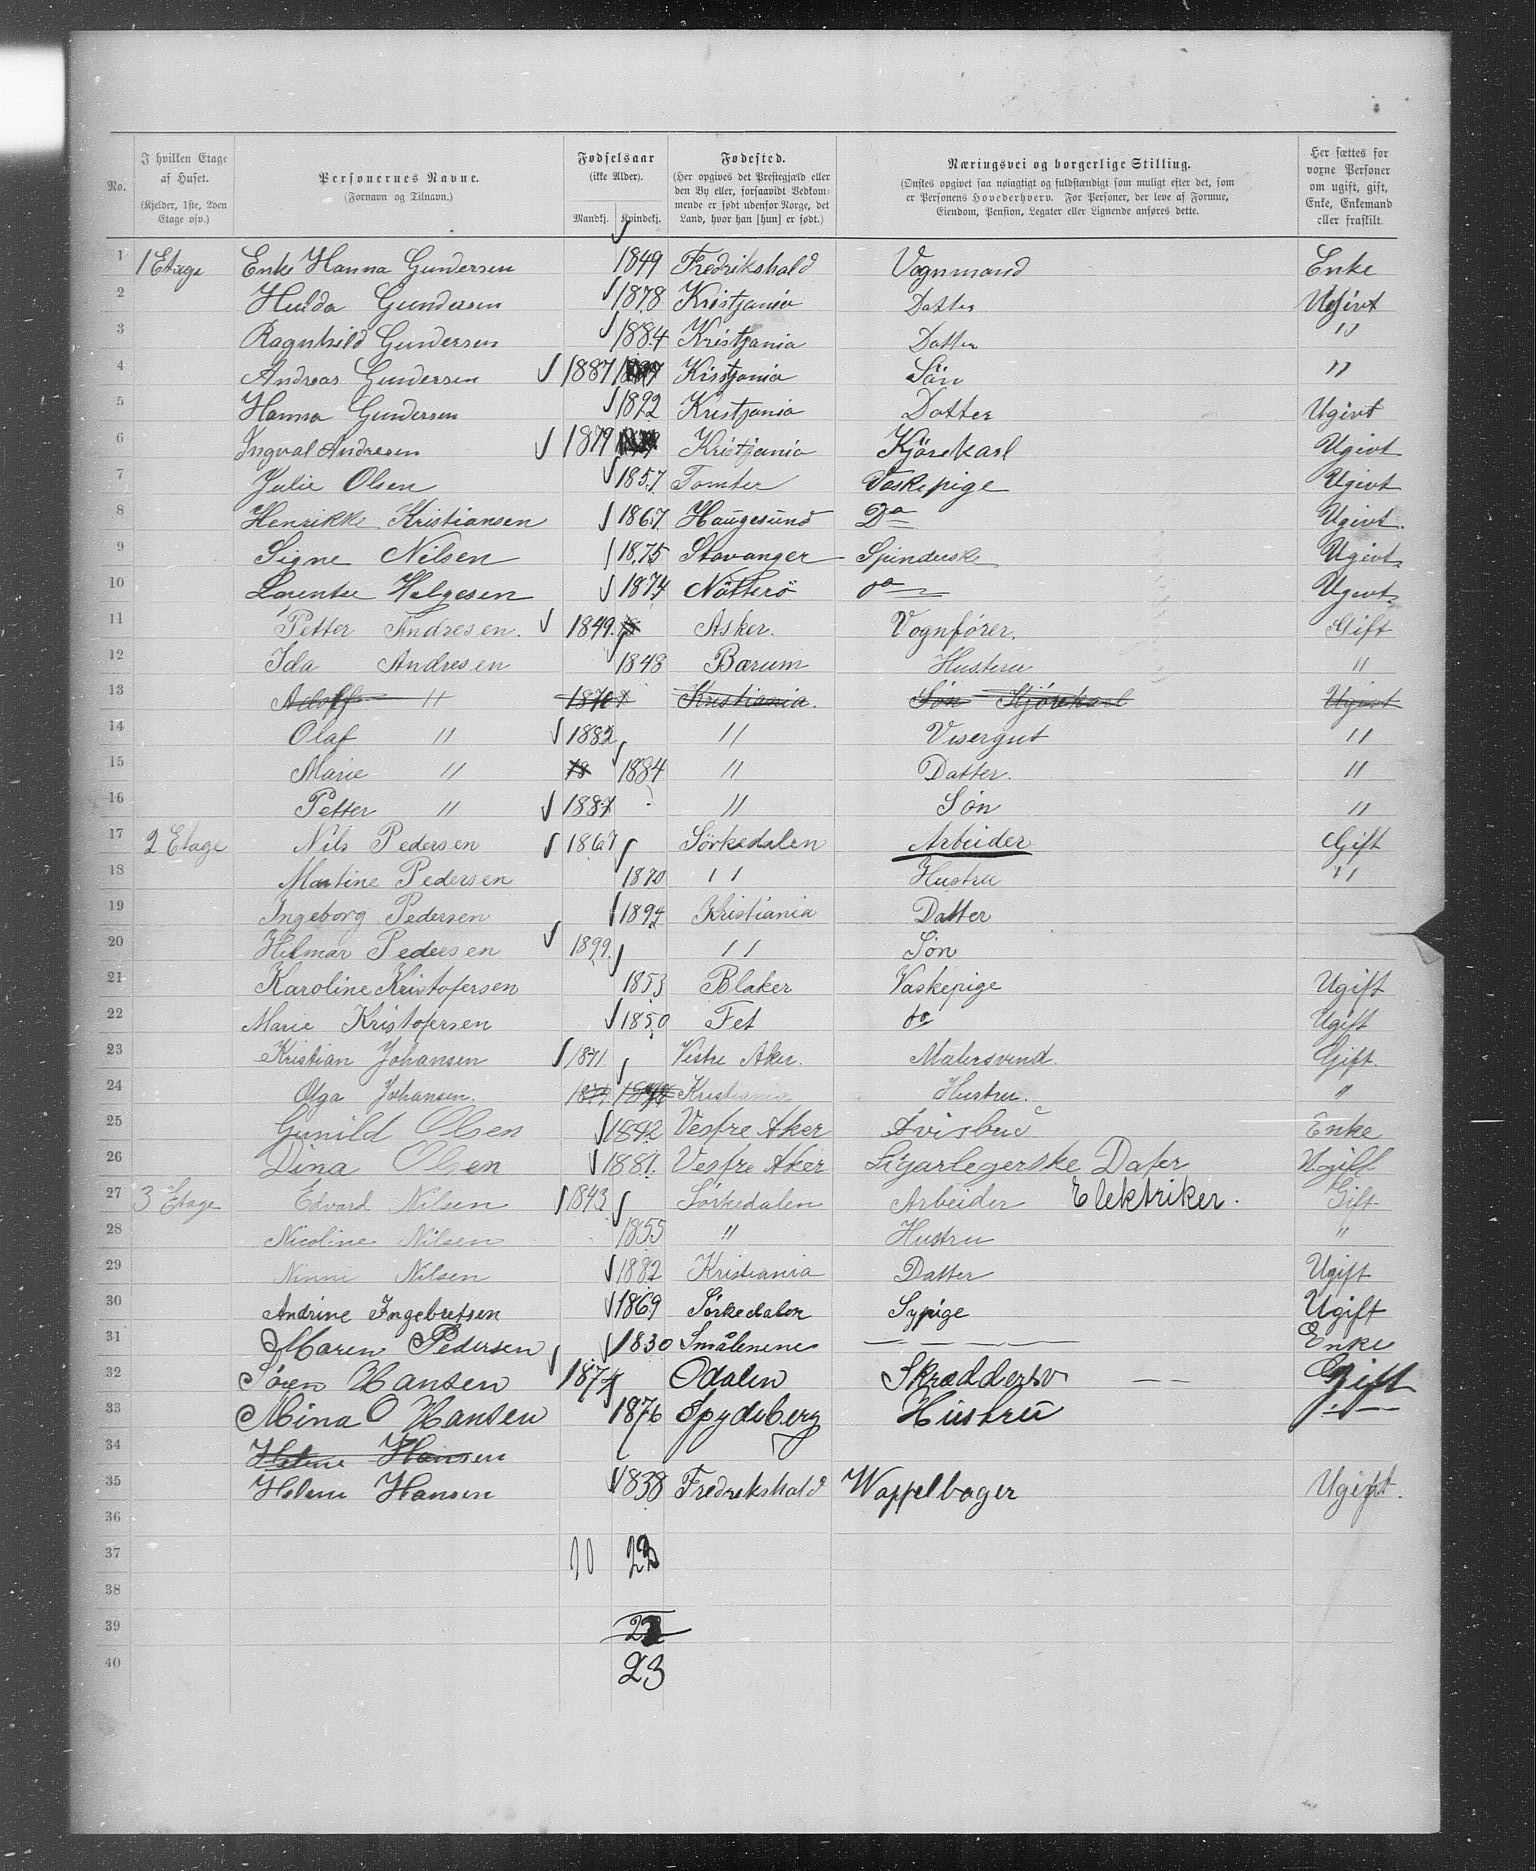 No. I hvilken Etage af Huset. (Kjelder, 1ste, 2den Etage osv.) Personernes Navne. (Fornavn og Tilnavn.) Fødselsaar (ikke Alder). Mandkj. Kvindekj. Fødested. (Her opgives det Prestegjæld eller den By eller, forsaavidt Vedkommende er født udenfor Norge, det Land, hvor han [hun] er født.) Næringsvei og borgerlige Stilling. (Ønskes opgivet saa nøiagtigt og fuldstændigt som muligt efter det, som er Personens Hovederhverv. For Personer, der leve af Formue, Eiendom, Pension, Legater eller Lignende anføres dette. Her sættes for voxne Personer om ugift, gift, Enke, Enkemand eller fraskilt.
1 1 Etage Enke Hanna Gundersen 1849 Fredrikshald Vognmand Enke
2 Hulda Gundersen 1878 Kristjania Datter Ugivt
3 Ragnhild Gundersen 1884 Kristjania Datter "
4 Andreas Gundersen 1887 Kristjania Sön "
5 Hanna Gundersen 1892 Kristjania Datter Ugivt
6 Ingval Andresen 1879 Kristjania Kjörekarl Ugivt
7 Julie Olsen 1857 Tomter Vaskepige Ugivt
8 Henrikke Kristiansen 1867 Haugesund Do Ugivt.
9 Signe Nilsen 1875 Stavanger Spinderske Ugivt.
10 Lorentse Helgesen 1874 Nötterö do Ugivt.
11 Petter Andresen. 1849. Asker. Vognfører. Gift
12 Ida Andresen 1848 Bærum Husteru "
13 Adolf " 1870 Kristiania. Søn Kjørekarl Ugivt
14 Olaf " 1882 " Visergut "
15 Marie " 18 1884 " Datter. "
16 Petter " 1887 " Søn "
17 2 Etage Nils Pedersen 1867 Sörkedalen Arbeider Gift
18 Martine Pedersen 1870 " Hustru "
19 Ingeborg Pedersen 1894 Kristiania Datter
20 Hilmar Pedersen 1899. " Søn
21 Karoline Kristofersen 1853 Blaker Vaskepige Ugift
22 Marie Kristofersen 1850 Fet do Ugift
23 Kristian Johansen 1871 Vestre Aker. Malersvend. Gift.
24 Olga Johansen. Kristiania Hustru. "
25 Gunild Olsen 1842 Vestre Aker Avisbud Enke
26 Dina Olsen 1881. Vestre Aker Sigarlegerske Dater Ugift
27 3 Etage Edvard Nilsen 1843 Sørkedalen Arbeider Elektriker. Gift
28 Nicoline Nilsen 1855 " Hustru "
29 Ninni Nilsen 1882 Kristiania Datter Ugift
30 Andrine Ingebretsen 1869 Sørkedalen Sypige Ugift
31 Maren Pedersen 1830 Smålenene — — — Enke
32 Søren Hansen 1874 Odalen Skrædders v — — Gift
33 Mina O Hansen 1876 Spydeberg Hustru "
34 Helene Hansen
35 Helene Hansen 1838 Fredrekshald Waffelbager Ugift.
36
37 10 22
38
39
40 23